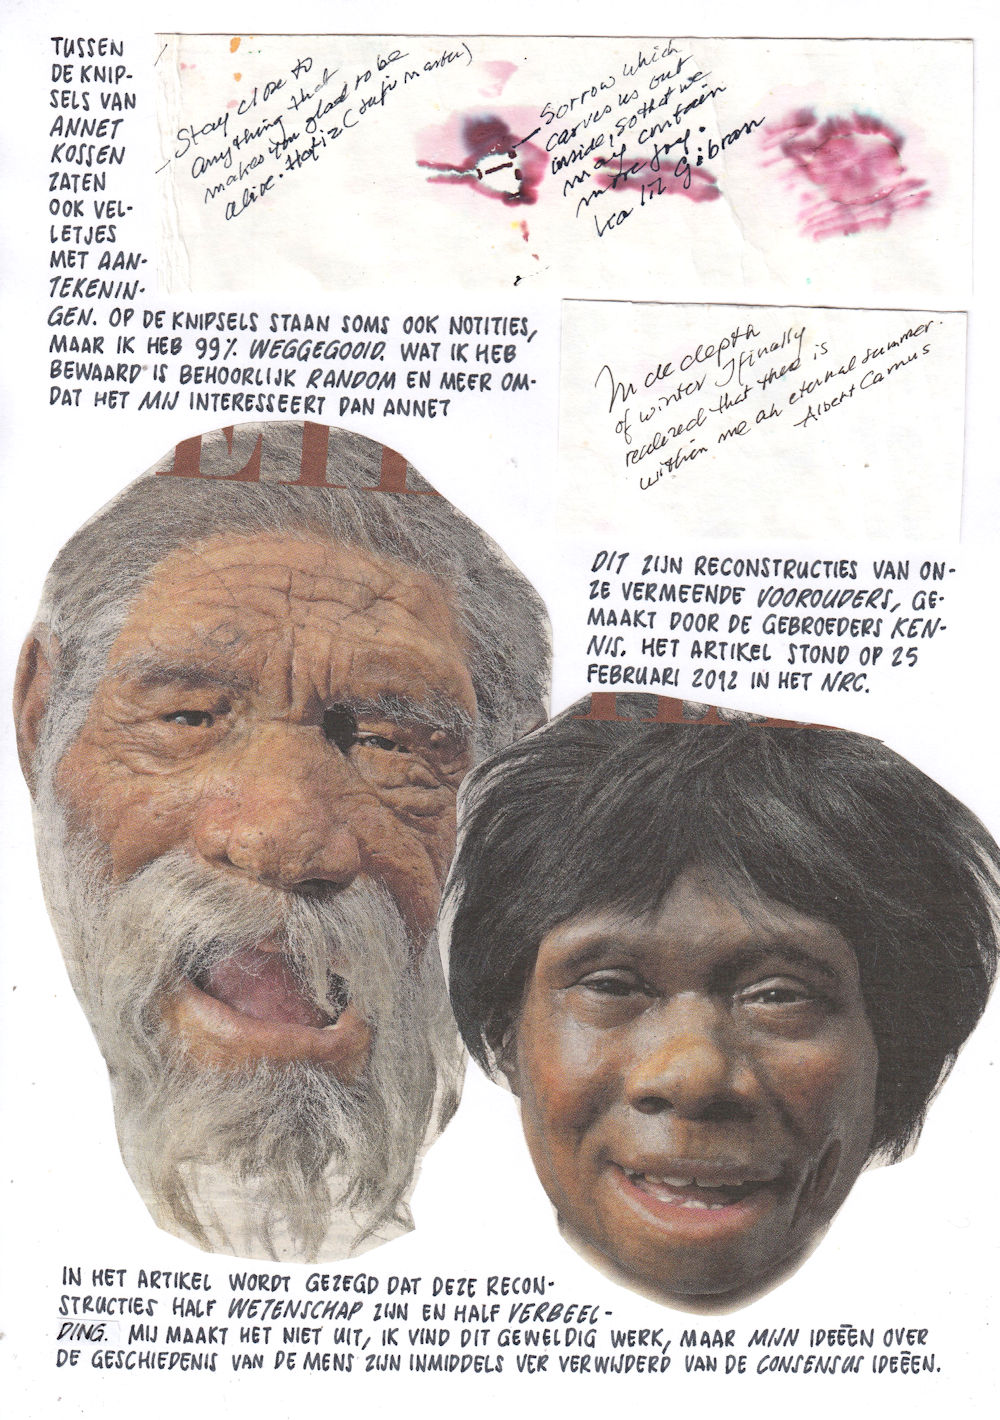 TUSSEN
DE KNIP-
SELS VAN
ANNET
KOSSEN
ZATEN
OOK VEL-
LETJES
MET AAN-
TEKENIN-
GEN. OP DE KNIPSELS STAAN SOMS OOK NOTITIES,
MAAR IK HEB 99% WEGGEGOOID. WAT IK HEB
BEWAARD IS BEHOORLIJK RANDOM EN MEER OM-
DAT HET MIJ INTERESSEERT DAN ANNET
- Stay close to
anything that
makes you glad to be
alive. Hafiz (sufi master)
- Sorrow which
carves us out
inside, so that we
may contain
more joy.
Kalil Gibran
In de depth
of winter I finally
realized that there is
within me an eternal summer.
Albert Camus
DIT ZIJN RECONSTRUCTIES VAN ON-
ZE VERMEENDE VOOROUDERS, GE-
MAAKT DOOR DE GEBROEDERS KEN-
NIS. HET ARTIKEL STOND OP 25
FEBRUARI 2012 IN HET NRC.
IN HET ARTIKEL WORDT GEZEGD DAT DEZE RECON-
STRUCTIES HALF WETENSCHAP ZIJN EN HALF VERBEEL-
DING. MIJ MAAKT HET NIET UIT, IK VIND DIT GEWELDIG WERK, MAAR MIJN IDEEËN OVER
DE GESCHIEDENIS VAN DE MENS ZIJN INMIDDELS VER VERWIJDERD VAN DE CONSENSUS IDEEËEN.